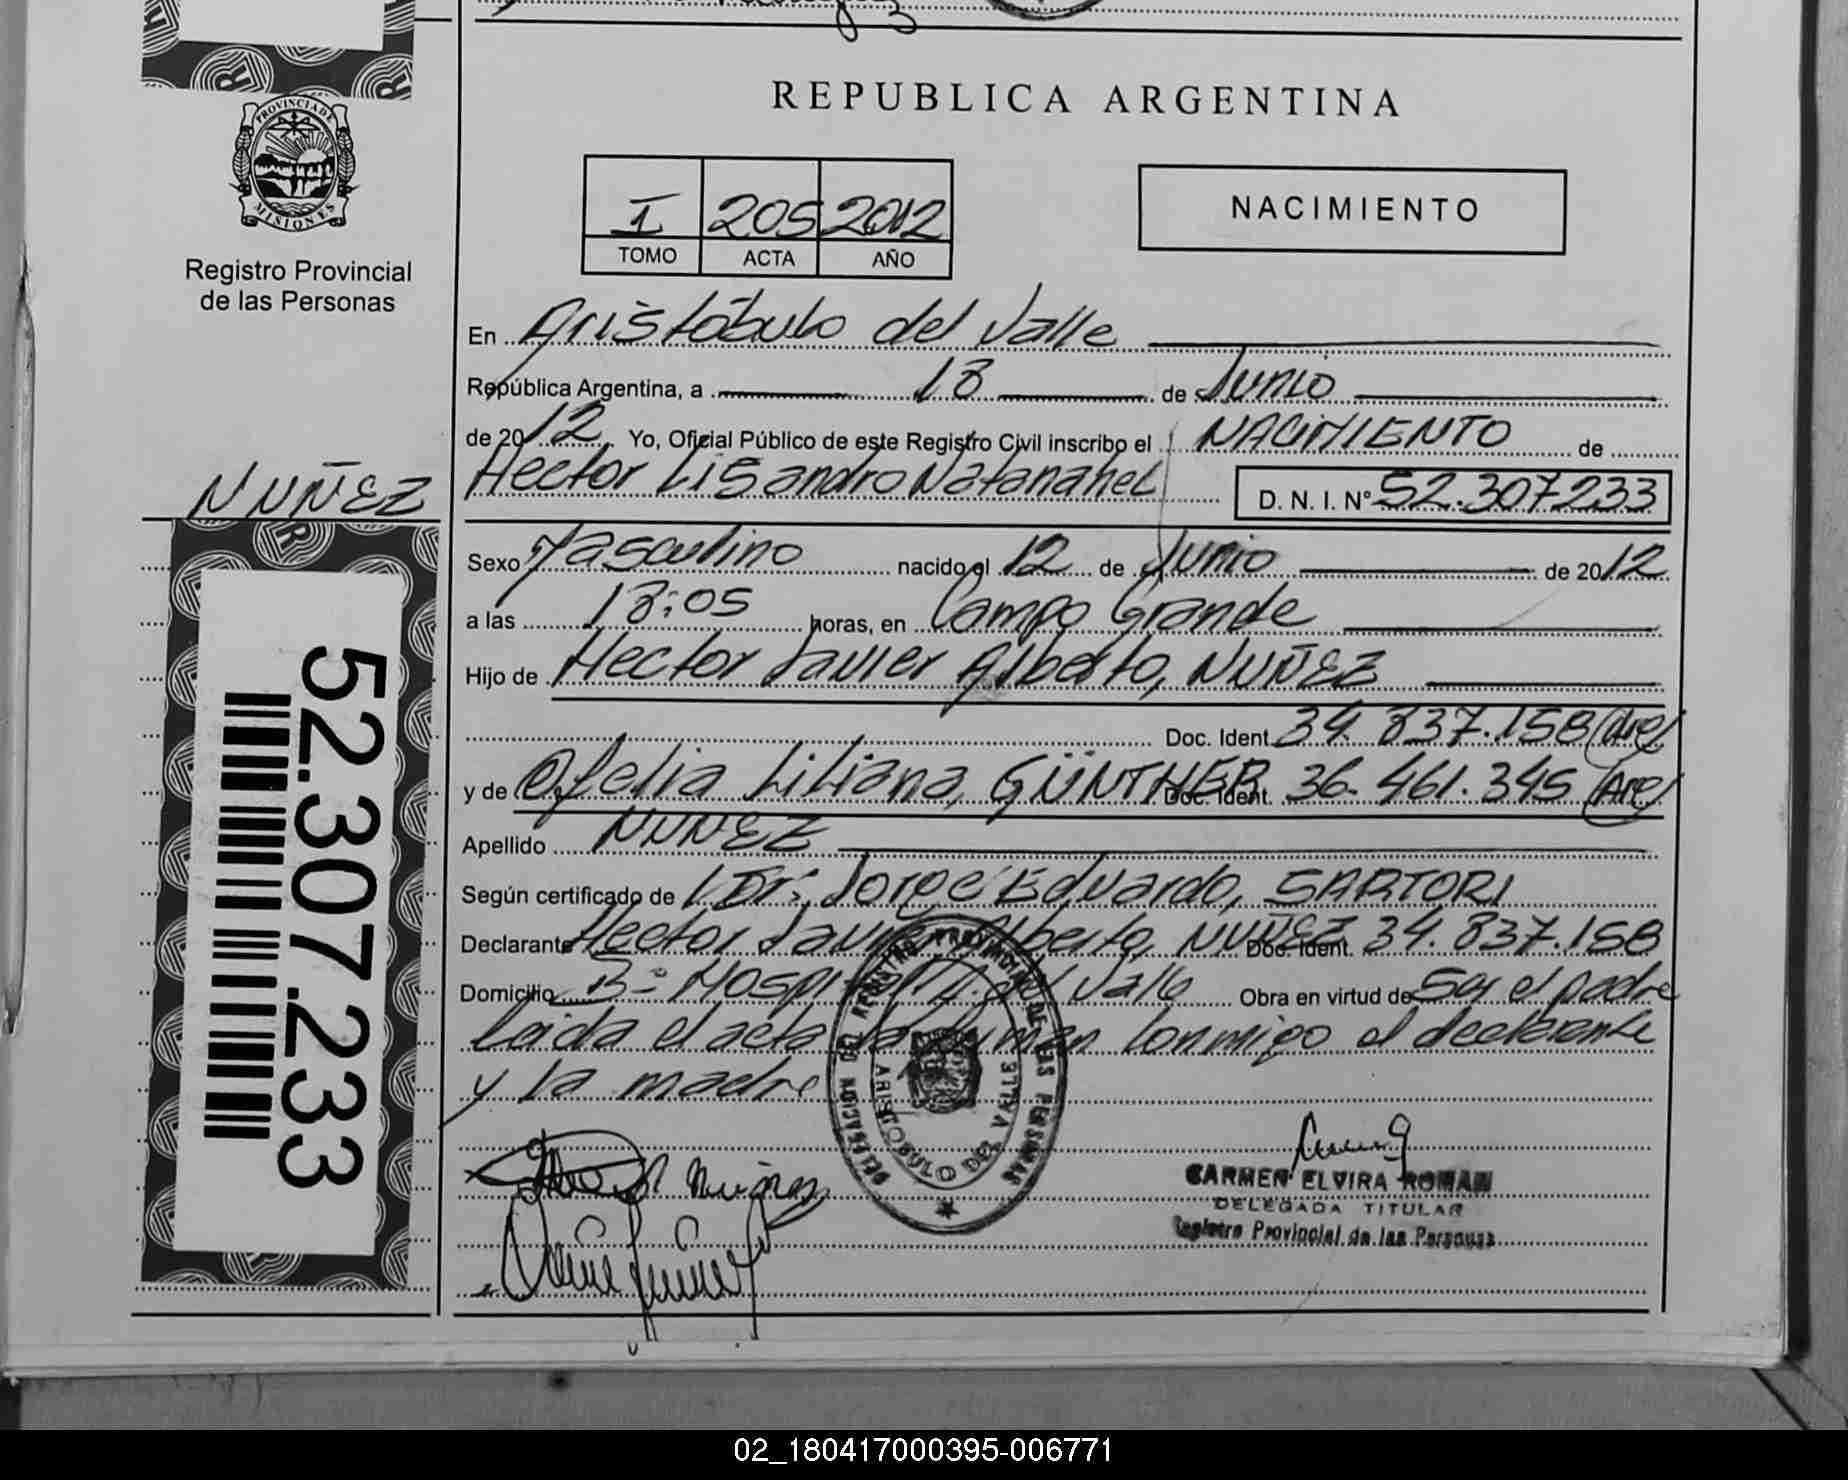 REPUBLICA ARGENTINA
PROVINCIA DE
MISIONES
Registro Provincial
de las Personas
I 205 2012
TOMO ACTA AÑO
NACIMIENTO
En Aristóbulo del Valle
República Argentina, a 18 de Junio
de 2012 Yo, Oficial Público de este Registro Civil inscribo el NACIMIENTO de
NUÑEZ
Hector Lisandro Natanahel D. N. I. Nº 52.307233
Sexo Masculino nacido el 12 de Junio de 2012
a las 18:05 horas, en Campo Grande
Hijo de Hector Javier Alberto, NUÑEZ
Doc. Ident. 34.837.158 (Arg)
y de Ofelia Liliana, GÜNTHER Doc. Ident. 36.461.345 (Arg)
Apellido NUÑEZ
Según certificado de Dr: Jorge Eduardo, SARTORI
Declarante Hector Javier Alberto, NUÑEZ Doc. Ident. 34.837.158
Domicilio Bº Hospital A. del Valle Obra en virtud de Ser el padre
Leida el acta la firman conmigo el declarante
y la madre
52.307.233
DELEGACION DEL REGISTRO PROVINCIAL DE LAS PERSONAS
ARISTOBULO DEL VALLE
CARMEN ELVIRA ROMAN
DELEGADA TITULAR
Registro Provincial de las Personas
02_180417000395-006771